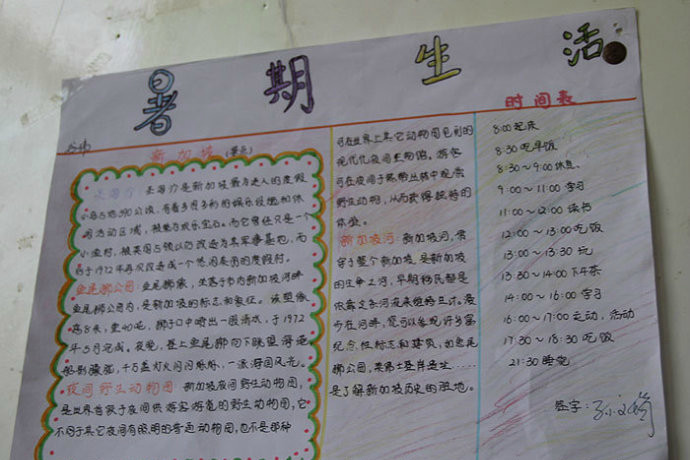 暑期生活
新加坡(景点)
圣淘沙 圣淘沙是新加坡最为迷人的度假
小岛占地390公顷,有着多姿多彩的娱乐设施和休
闲活动区域,被誉为欢乐宝石。而它曾经只是一个
小渔村,被英国占领以后改造为其军事基地,而
后于1972年再次改造成一个悠闲美丽的度假村。
鱼尾狮公园 鱼尾狮像,坐落于市内新加坡河畔
鱼尾狮公园内,是新加坡的标志和象征。该塑像
高8米,重40吨,狮子口中喷出一股清水,于1972
年5月完成。夜晚,
船影朦胧,千万盏灯火闪闪烁烁,一派海国风光。
夜间野生动物园 新加坡夜间野生动物园,
是世界首家于夜间供游客游览的野生动物园,它
不同于其它夜间有照明的普通动物园,也不是那种
可在世界上其它动物园见到的
现代化夜间动物馆。游客
可在夜间于热带丛林中观赏
野生动物,从而获得独特的
体验。
新加坡河 新加坡河,贯
穿于整个新加坡,是新加
坡的生命之河,早期移民都是
依靠这条河流来维持生计。漫
步在河畔,您可以参观许多富
纪念性标志和建筑,如鱼尾
狮公园,莱佛士登岸遗址……
是了解新加坡历史的胜地。
时间表
8:00起床
8:30吃早饭
8:30~9:00休息
9:00~11:00学习
11:00~12:00读书
12:00~13:00吃饭
13:00~13:30玩
13:30~14:00下午茶
14:00~16:00学习
16:00~17:00运动,活动
17:30~18:30吃饭
21:30睡觉
签字: